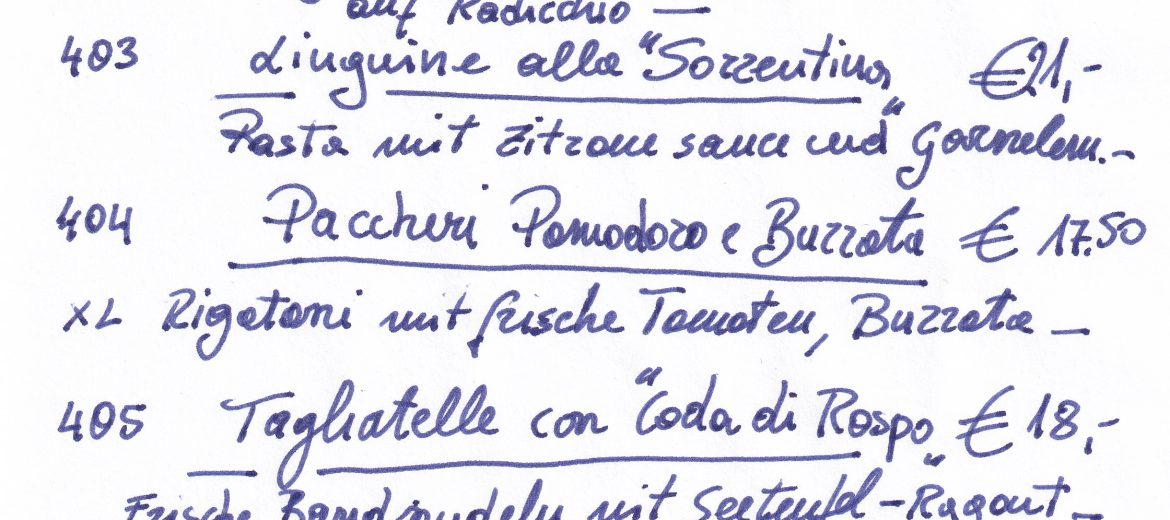 auf Radicchio —
403 Linguine alla "Sorrentina" €21,-
Pasta mit Zitronensauce und Garnelen.-
404 Paccheri Pomodoro e Burrata € 17.50
XL Rigatoni mit frische Tomaten, Burrata —
405 Tagliatelle con "Coda di Rospo" € 18,-
Frische Bandnudeln mit Seeteufel-Ragout —